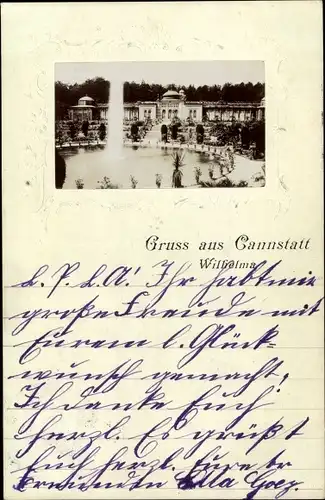 Gruss aus Cannstatt
Wilhelma
L. P. L. A! Ihr habt mir
große Freude mit
Eurem l. Glück-
wunsch gemacht,
Ich danke Euch
herzl. Es grüßt
Euch herzl. Eure